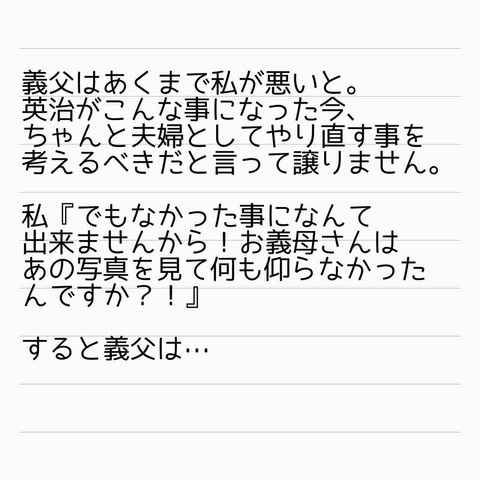 義父はあくまで私が悪いと。
英治がこんな事になった今、
ちゃんと夫婦としてやり直す事を
考えるべきだと言って譲りません。
私『でもなかった事になんて
出来ませんから！お義母さんは
あの写真を見て何も仰らなかった
んですか？！』
すると義父は…